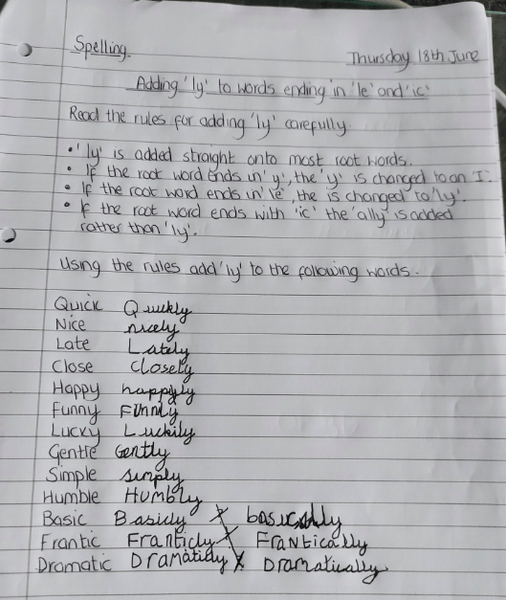 Spelling. Thursday 18th June
Adding 'ly' to words ending in 'le' and 'ic'
Read the rules for adding 'ly' carefully
• 'ly' is added straight onto most root words.
• If the root word ends in 'y', the 'y' is changed to an 'I'.
• If the root word ends in 'le', the is changed to 'ly'.
• If the root word ends with 'ic' the 'ally' is added
rather than 'ly'.
Using the rules add 'ly' to the following words.
Quick Quikly
Nice nicely
Late Lately
Close closely
Happy
Funny Funnly
Lucky Luckily
Gentle Gently
Simple simply
Humble Humbly
Basic Basicly x basically
Frantic Franticly x Frantically
Dramatic Dramaticly x Dramatically